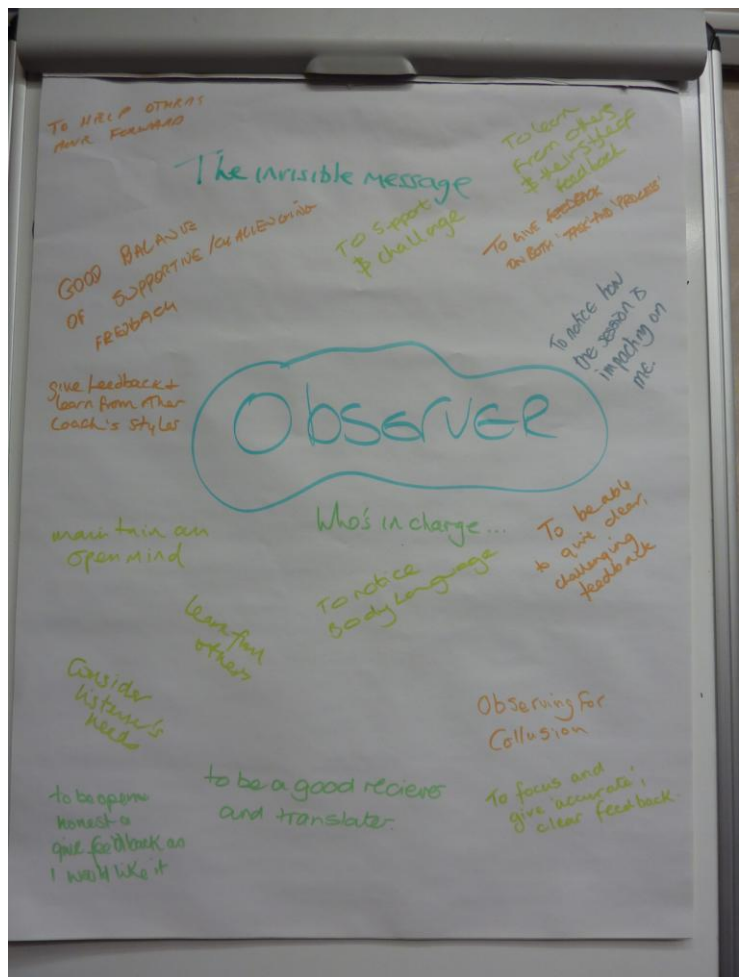 To HELP OTHERS
MOVE FORWARD
The invisible message
To learn
From others
$ their style of
feedback
GOOD BALANCE
OF SUPPORTIVE / CHALLENGING
FEEDBACK
To support
$ challenge
To GIVE FEEDBACK
ON BOTH 'TASK' AND 'PROCESS'
To notice how
the session is
impacting on
me.
give feedback +
learn from other
Coach's styles
Observer
maintain an
open mind
Who's in charge ...
To be able
to give clear,
challenging
feedback
To notice
Body Language
Learn from
others
Consider
listener's
needs
Observing For
Collusion
to be open
honest &
give feedback as
I would like it
to be a good reciever
and translater.
To focus and
give 'accurate',
clear feedback.